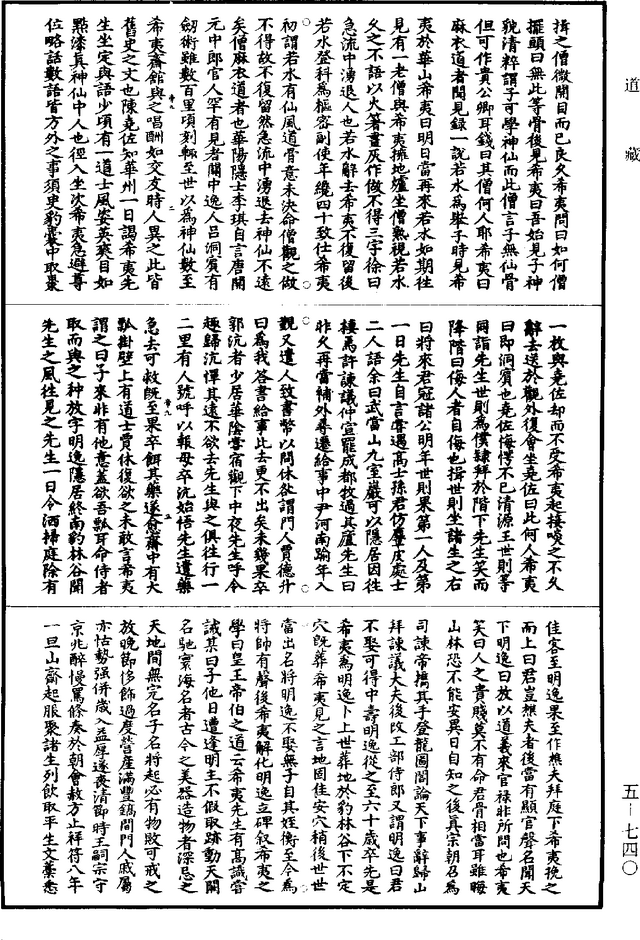 道藏
揖之僧微開目而已良久希夷問曰如何僧
擺頭曰無此等骨後見希夷曰吾始見子神
貌清粹謂子可學神仙而此僧言子無仙骨
但可作貴公卿耳錢曰其僧何人耶希夷曰
麻衣道者聞見錄一說若水為舉子時見希
夷於華山希夷曰明日當再來若水如期往
見有一老僧與希夷擁地爐坐僧熟視若水
久之不語以火箸畫灰作做不得三字徐曰
急流中湧退人也若水辭去希夷不復留後
若水登科為樞密副使年纔四十致仕希夷
初謂若水有仙風道骨意未決命僧觀之做
不得故不復留然急流中湧退去神仙不遠
矣僧麻衣道者也華陽隱士李琪自言唐開
元中郎官人罕有見者關中逸人呂洞賓有
劒術雖數百里頃刻輒至世以為神仙數至
希夷齋館與之唱酬如交友時人異之此皆
舊史之文也陳堯佐知華州一日謁希夷先
生坐定與語少頃有一道士風姿英爽目如
點漆真神仙中人也徑入坐次希夷急避尊
位略話數語皆方外之事須臾豹囊中取棗
一枚與堯佐却而不受希夷起接啖之不久
辭去送於觀外復會坐堯佐曰此何人希夷
曰即洞賓也堯佐悔愕不已清源王世則等
同詣先生世則為僕隸拜於階下先生笑而
降階曰侮人者自侮也揖世則坐諸生之右
曰將來君冠諸公明年世則果第一人及第
一日先生自言嘗遇高士孫君仿麞皮處士
二人語余曰武當山九室巖可以隱居因往
棲焉許諫議仲宣罷成都牧過其廬先生曰
非久再當補外尋遷給事中尹河南踰年入
觀又遣人致書幣以問休咎謂門人賈德升
曰為我答書給事比去更不出矣未幾果卒
郭沆者少居華陰嘗宿觀下中夜先生呼令
趣歸沆憚其遠不欲去先生與之俱往行一
二里有人號呼以報母卒沆始悟先生遺藥
急去可救既至果卒餌其藥遂甦齋中有大
瓢掛壁上有道士賈休復欲之未敢言希夷
謂之曰子來非有他意蓋欲吾瓢耳命侍者
取而與之种放字明逸隱居終南豹林谷聞
先生之風往見之先生一日令洒掃庭除有
佳客至明逸果至作樵夫拜庭下希夷挽之
而上曰君豈樵夫者後當有顯官聲名聞天
下明逸曰放以道義來官祿非所問也希夷
笑曰人之貴賤莫不有命君骨相當耳雖晦
山林恐不能安異日自知之後真宗朝召為
司諫帝攜其手登龍圖閣論天下事辭歸山
拜諫議大夫後改工部侍郎又謂明逸曰君
不娶可得中壽明逸從之至六十歲卒先是
希夷為明逸卜上世葬地於豹林谷下不定
穴既葬希夷見之言地固佳安穴稍後世世
當出名將明逸不娶無子自其姪衡至今為
將帥有聲後希夷解化明逸立碑叙希夷之
學曰皇王帝伯之道云希夷先生有高識嘗
誡某曰子他日遭逢明主不假取跡動天闕
名馳寰海名者古今之美器造物者深忌之
天地間無定名子名將起必有物敗可戒之
放晚節侈飾過度營產滿豐鎬間門人戚屬
亦怙勢强併歲入益厚遂喪清節時王嗣宗守
京兆醉慢罵條奏於朝會赦方止祥符八年
一旦山齋起服聚諸生列飲取平生文藁悉
五－七四〇